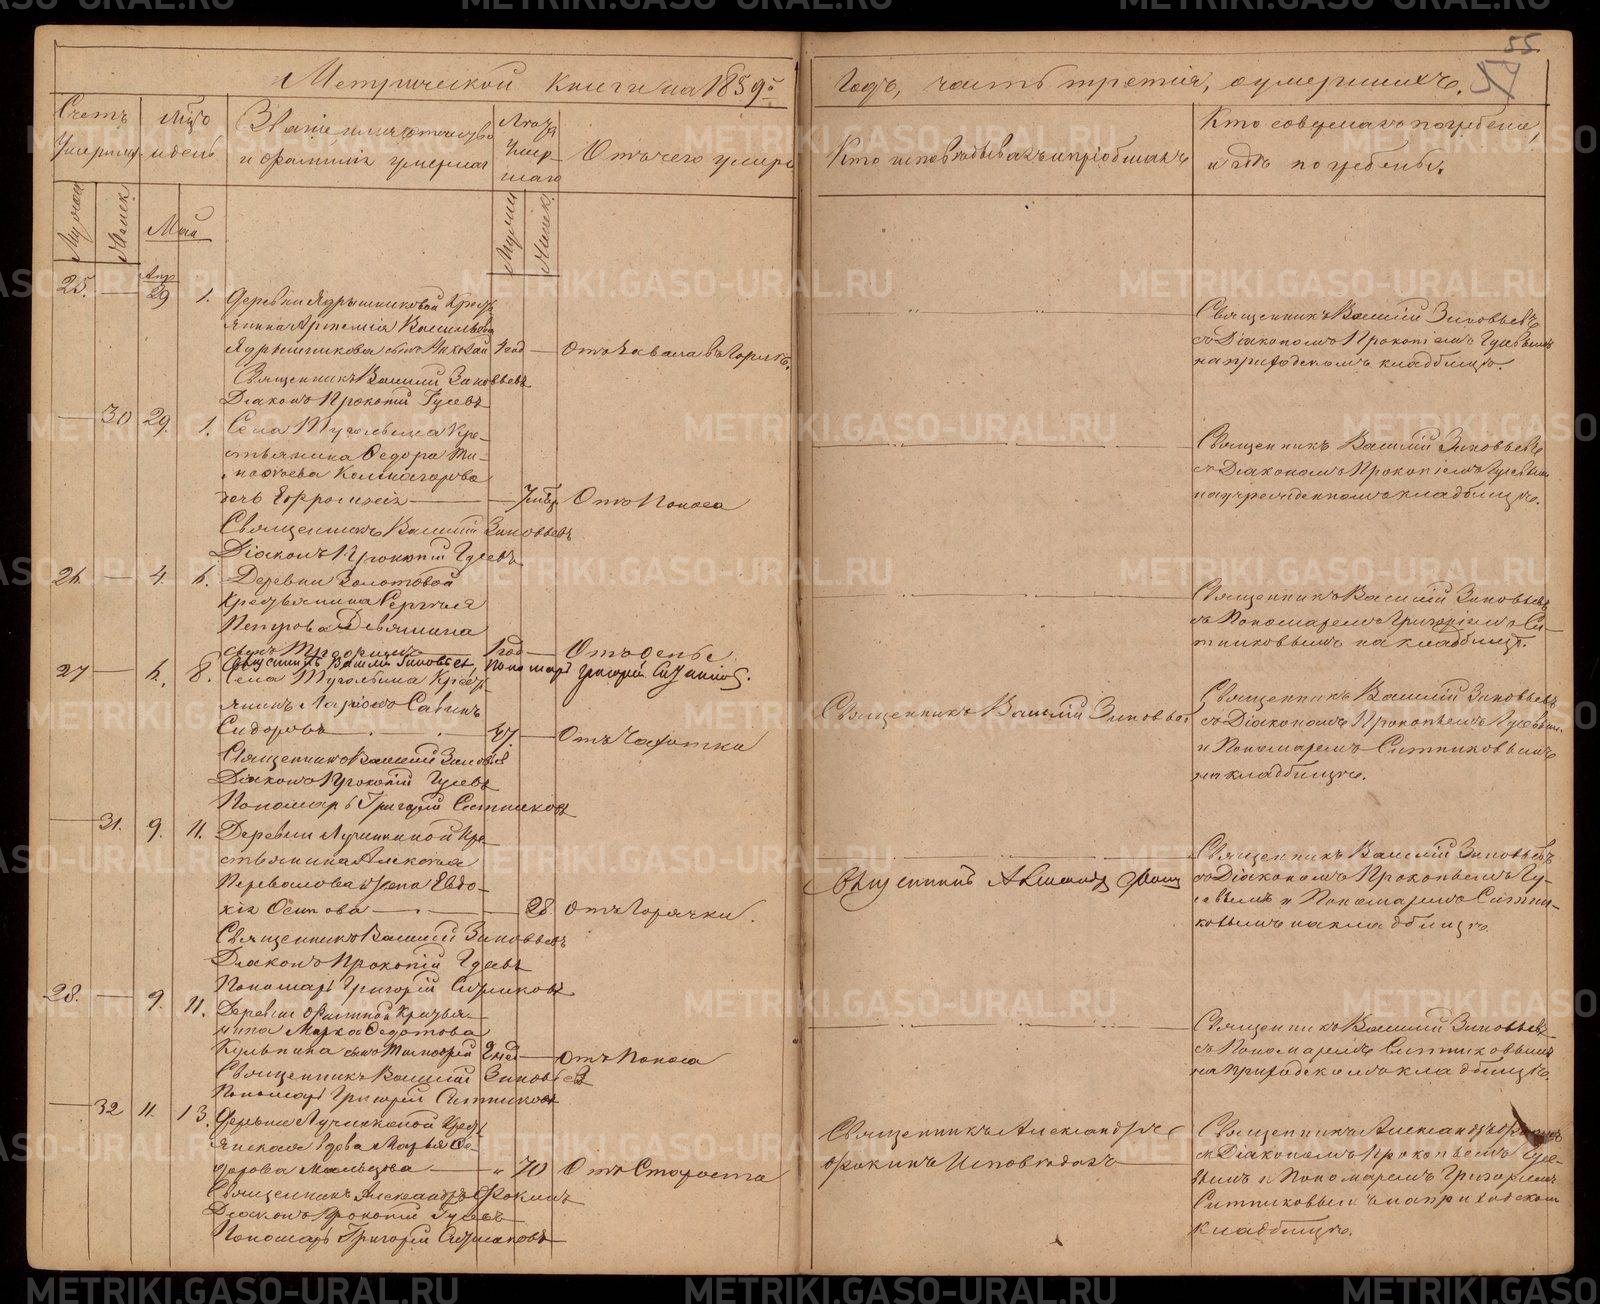 Метрической книги на 1859й
Годъ, часть третія, о умершихъ.
55
57
Счетъ
Умершихъ
Мѣсяцъ
и день
Званіе, имя, отчество
и фамилія умершаго
Лѣта
умер-
шаго
Отъ чего умеръ
Кто исповѣдывалъ и пріобщалъ
Кто совершалъ погребеніе
и гдѣ погребены.
Муж.
Женск.
Май
25.
Апр
29
1.
Деревни Ядрышниковой Кресть
янина Артемія Васильева
Ядрышникова сынъ Николай
1 год
Священникъ Василій Зиновьевъ
Діаконъ Прокопій Гусевъ
Священникъ Василій Зиновьевъ
съ Діакономъ Прокопіемъ Гусевымъ
на приходскомъ кладбищѣ.
30
29.
1.
Села Туголыма Кре-
стьянина Федора Ти-
мофеева
дочь Ефросинія
Отъ Поноса
Священникъ Василій Зиновьевъ
Діаконъ Прокопій Гусевъ
Священникъ Василій Зиновьевъ
съ Діакономъ Прокопіемъ Гусевымъ
на учрежденномъ кладбищѣ.
26.
4.
6.
Деревни Золотовой
Крестьянина Сергѣя
Петрова Девяшина
сынъ Григорій
1 год
Отъ оспы
Священникъ Василій Зиновьевъ, Пономарь Григорій Ситниковъ.
Священникъ Василій Зиновьевъ
съ Пономаремъ Григоріемъ Си-
тниковымъ на кладбищѣ.
27
6.
8.
Села Туголыма Кресть
янинъ Ларіонъ Савинъ
Сидоровъ
67
Отъ Чахотки
Священникъ Василій Зиновьевъ
Діаконъ Прокопій Гусевъ
Пономарь Григорій Ситниковъ
Священникъ Василій Зиновьевъ
Священникъ Василій Зиновьевъ
съ Діакономъ Прокопіемъ Гусевымъ
и Пономаремъ Ситниковымъ
на кладбищѣ.
31.
9.
11.
Деревни Лучинкиной Кре
стьянина Алексѣя
Перевалова жена Евдо-
кія Осипова
28
Отъ Горячки.
Священникъ Василій Зиновьевъ
Діаконъ Прокопій Гусевъ
Пономарь Григорій Ситниковъ
Священникъ Александр Фокин
Священникъ Василій Зиновьевъ
съ Діакономъ Прокопіемъ Гу-
севымъ и Пономаремъ Ситни-
ковымъ на кладбищѣ.
28.
9.
11.
Деревни Филиной Крестья-
нина Марка Федотова
Кульпина сынъ Тимофей
2 нед
Отъ Поноса
Священникъ Василій Зиновьев
Пономарь Григорій Ситниковъ
Священникъ Василій Зиновьевъ
съ Пономаремъ Ситниковымъ
на Приходскомъ кладбищѣ.
32
11.
13.
Деревни Лучинкиной Кресть
янская вдова Марья Фе-
дорова Мальцова
70
Отъ Старости
Священникъ Александръ Фокинъ
Діаконъ Прокопій Гусевъ
Пономарь Григорій Ситниковъ
Священникъ Александръ
Фокинъ Исповѣдалъ
Священникъ Александръ Фокинъ
съ Діакономъ Прокопьемъ Гусе-
вымъ и Пономаремъ Григоріемъ
Ситниковымъ на приходскомъ
кладбищѣ.
METRIKI.GASO-URAL.RU